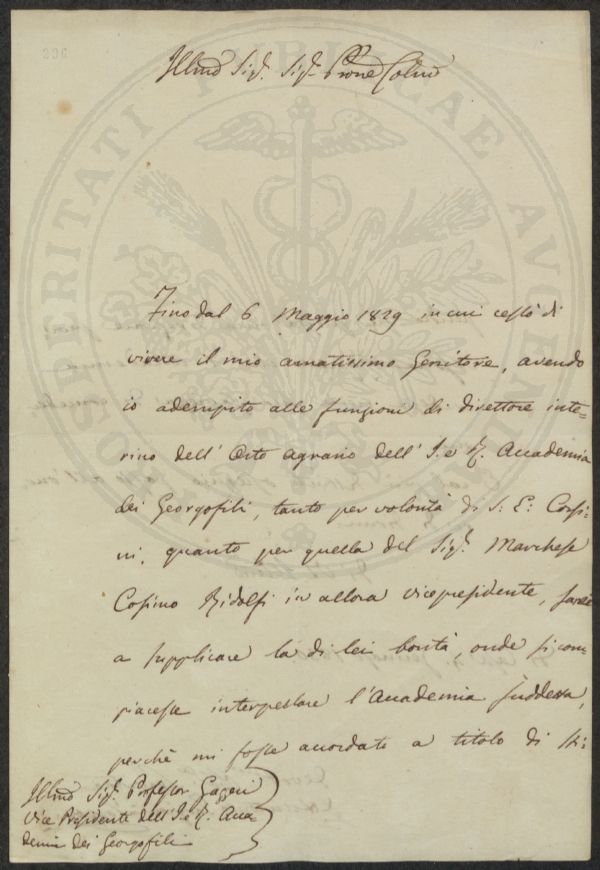 Illmo Sig.r Sig.r Prone Colmo
Fino dal 6 Maggio 1829 in cui cessò di
vivere il mio amatissimo Genitore, avendo
io adempito alle funzioni di direttore inte=
rino dell' Orto agrario dell' I. e R. Accademia
dei Georgofili, tanto per volontà di S: E: Corsi=
ni, quanto per quella del Sig.r Marchese
Cosimo Ridolfi in allora vicepresidente, sarei
a supplicare la di lei bontà, onde si com=
piacesse interpellare l'Accademia suddetta,
perchè mi fosse accordato a titolo di sti=
Illmo Sig.r Professor Gazzeri
Vice Presidente dell' I. e R. Acca=
demia dei Georgofili
PROSPERITATI PUBLICAE AUGENDAE